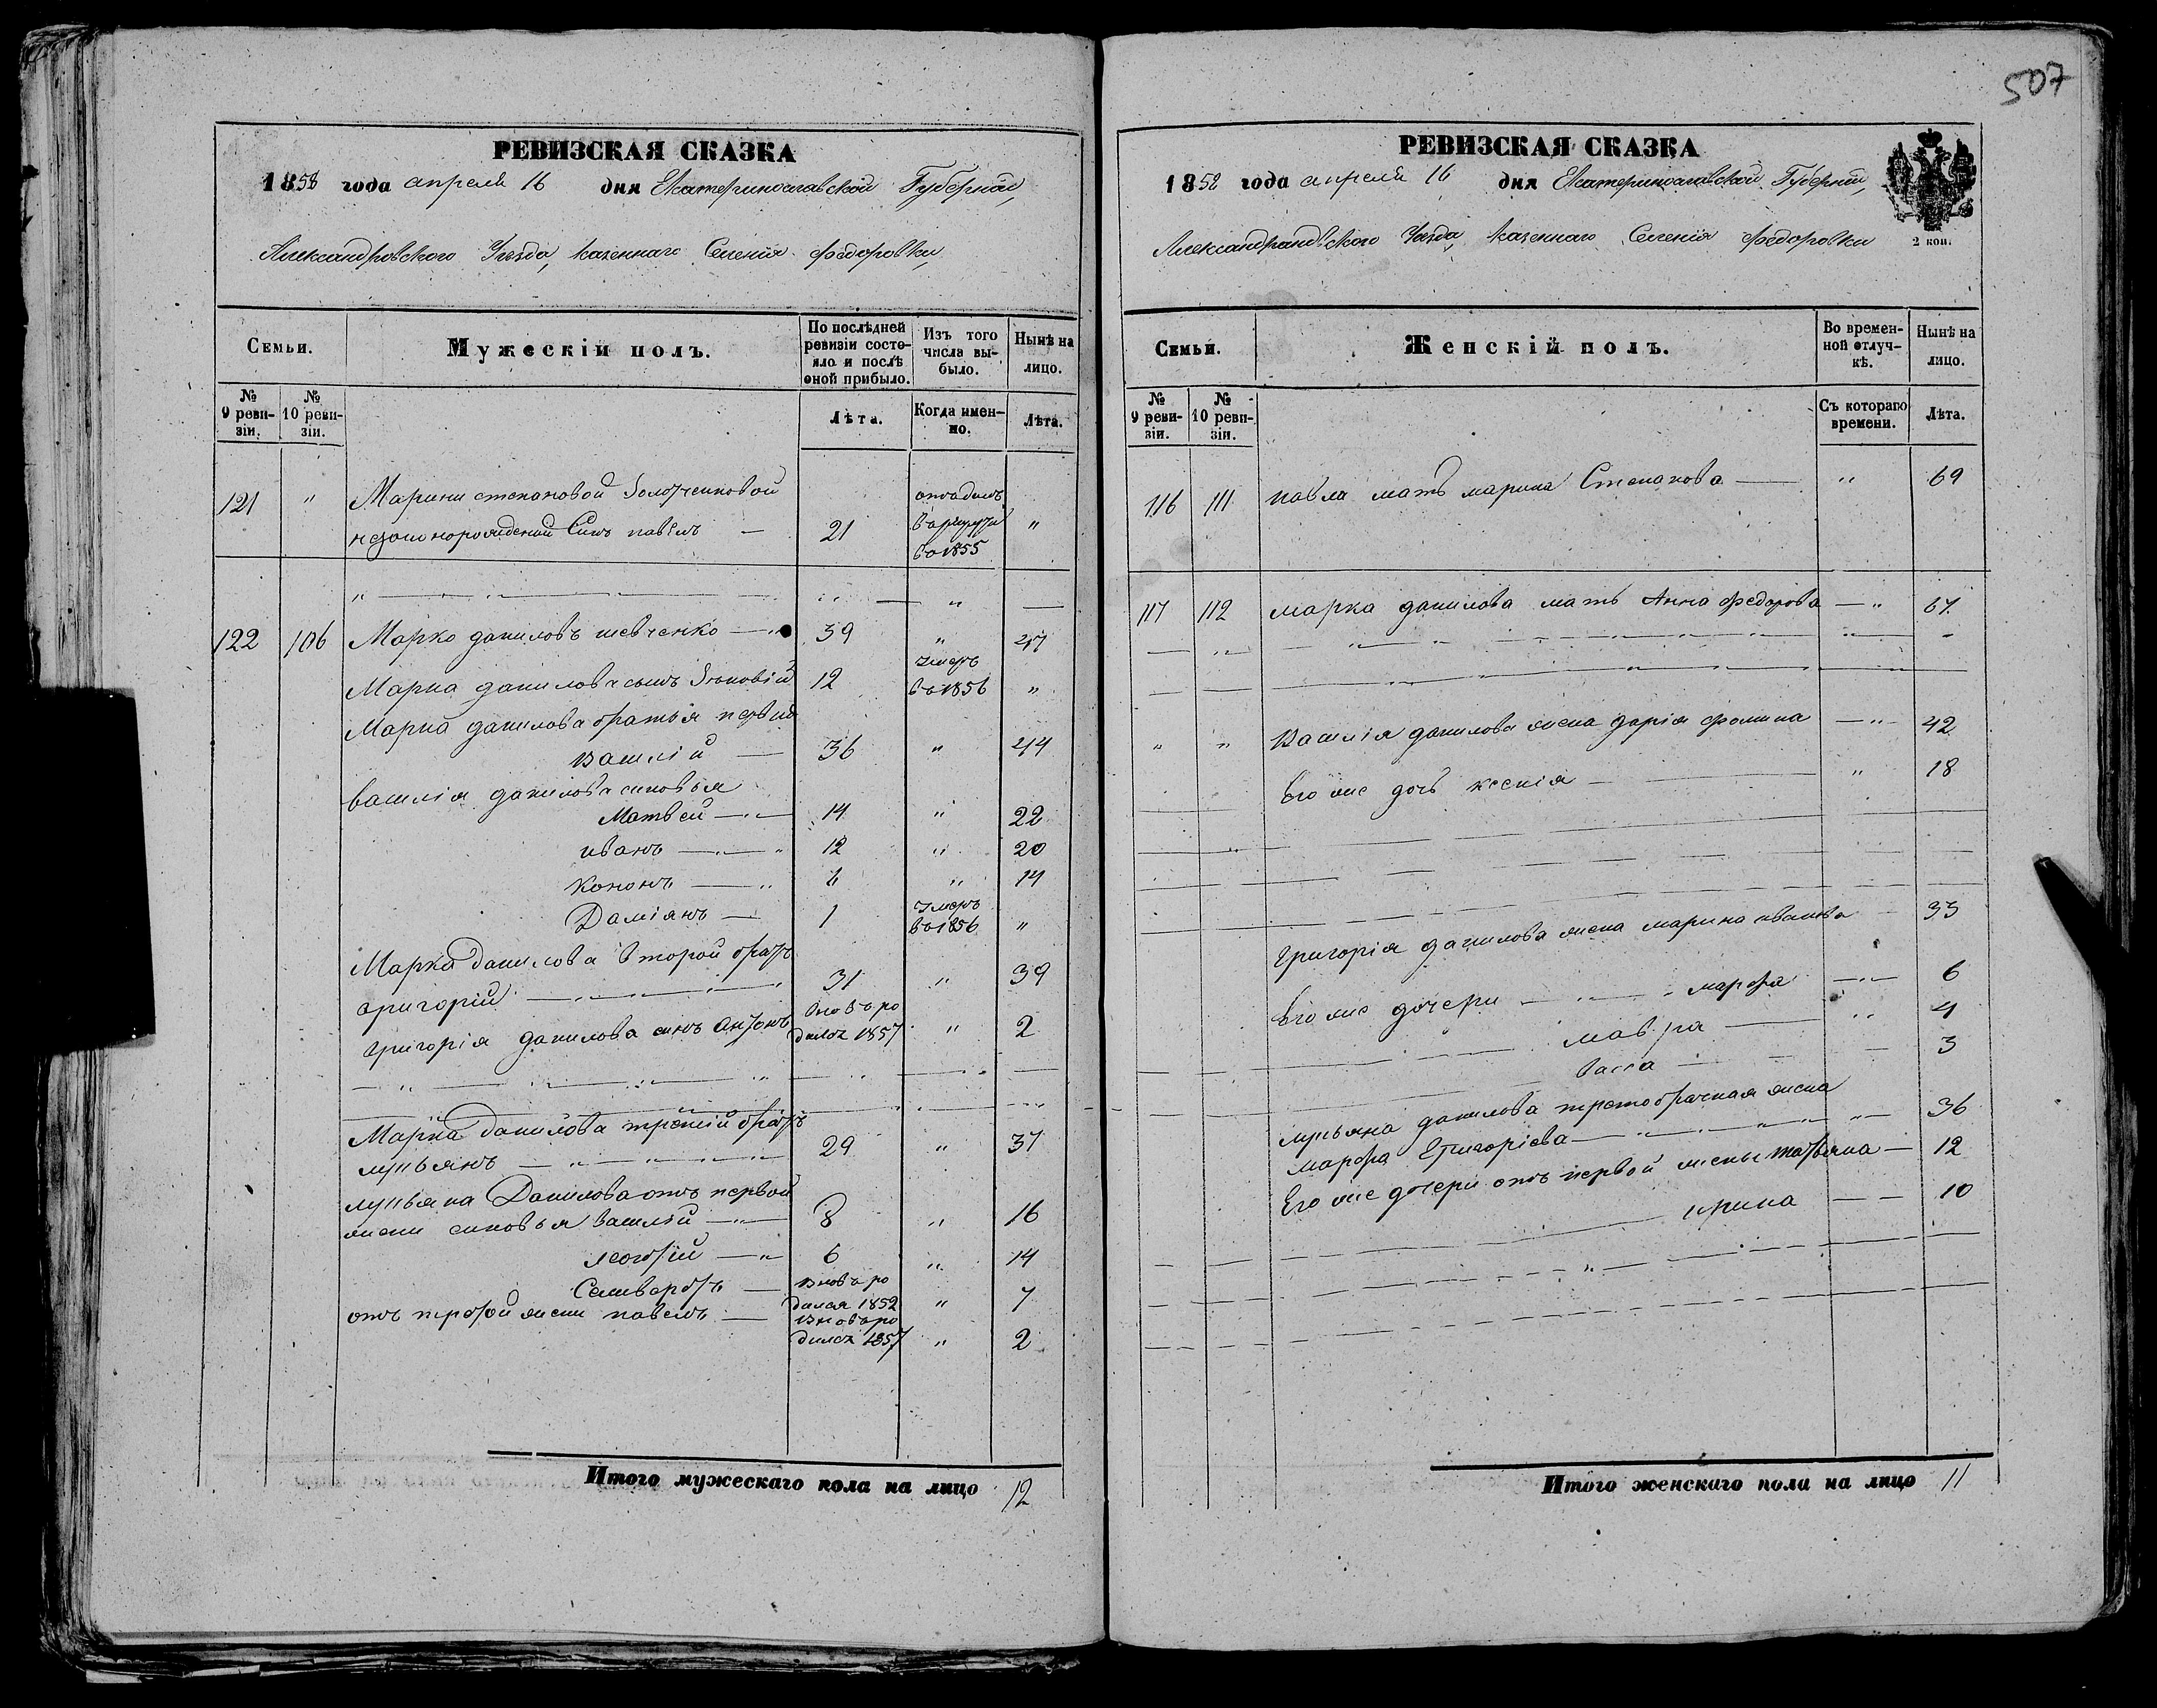 507
РЕВИЗСКАЯ СКАЗКА
1858 года апреля 16 дня Екатеринославской Губернии,
Александровского Уезда, казеннаго Селенія Федоровки,
Семьи.
Мужескій полъ.
По послѣдней ревизіи состояло и послѣ оной прибыло.
Изъ того числа выбыло.
Нынѣ на лицо.
№ 9 ревизіи.
№ 10 ревизіи.
Лѣта.
Когда именно.
Лѣта.
121 " Марини степановой
незаконорожденой Синъ павелъ — 21 отдадымъ в рекруты во 1855 "
122 106 Марко даниловъ шевченко — 39 " 47
Марка данилова сынъ Зѣновій 12 Умеръ во 1856 "
Марка данилова братья первій
василій — 36 " 44
василія данилова синовья
Матвей — 14 " 22
иванъ — 12 " 20
Кононъ — 6 " 14
Даміянъ — 1 Умеръ во 1856 "
Марка данилова второй братъ
григорій — 31 " 39
григорія данилова синъ Антонъ вновъ родился 1857 " 2
Марка данилова третій братъ
лукьянъ — 29 " 37
лукьяна Данилова отъ первой
жени синовья василій — 8 " 16
леонтій — 6 " 14
Селиверстъ — вновъ родился 1852 " 7
отъ третой жени павелъ — вновъ родился 1857 " 2
Итого мужескаго пола на лицо 12
РЕВИЗСКАЯ СКАЗКА
1858 года апреля 16 дня Екатеринославской Губерніи,
Александровского Уезда, казеннаго Селенія Федоровки
2 коп.
Семьи.
Женскій полъ.
Во временной отлучкѣ.
Нынѣ на лицо.
№ 9 ревизіи.
№ 10 ревизіи.
Съ котораго времени.
Лѣта.
116 111 павла мать марина Степанова — " 69
117 112 марка данилова мать Анна федорова — " 67
" " василія данилова жена дарія фомина — " 42
его же дочь ксенія — " 18
григорія данилова жена марина иванова 33
его же дочери — марфа — 6
мавра — " 4
васса — 3
лукьяна данилова третобрачная жена
марфа Григоріева — " 36
Его же дочери отъ первой жены татьяна — 12
ирина — 10
Итого женскаго пола на лицо 11